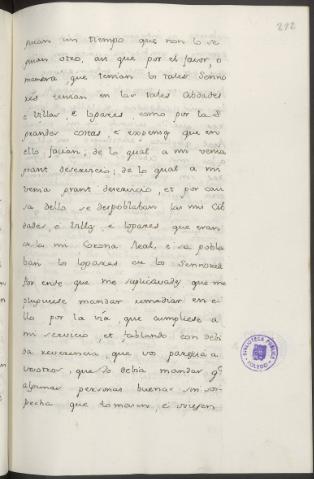 212
puian un tiempo que non lo se
puian otro, asi que por el favor, o
manera que tenian los tales Senno
res venian en las tales Cibdades
e Villas, e logares, como por las
grandes costas e expensas que en
ello facian, de lo qual a mi venia
grant deservicio; de lo qual a mi
venia grant deservicio, et por cau
sa dello se despoblaban las mis Cib
dades, e Villas e logares que eran
de la mi Corona Real, e se pobla
ban los logares de los Sennores
Por ende que me suplicavades que me
pluguiese mandar remediar en e
llo por la vía, que cumpliese a
mi servicio, et fablando con debi
da reverencia, que vos parescia a
vosotros, que Yo debia mandar qe.
algunas personas buenas sin sos
pecha que tomasen, e oviesen
BIBLIOTECA PUBLICA
TOLEDO